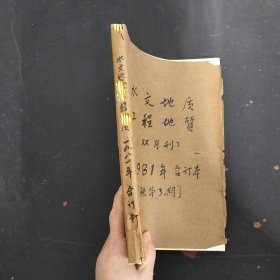 水文地质
工程地質
(双月刊)
1981年合订本
[缺第3期]
水文地 一九八一年 合订本